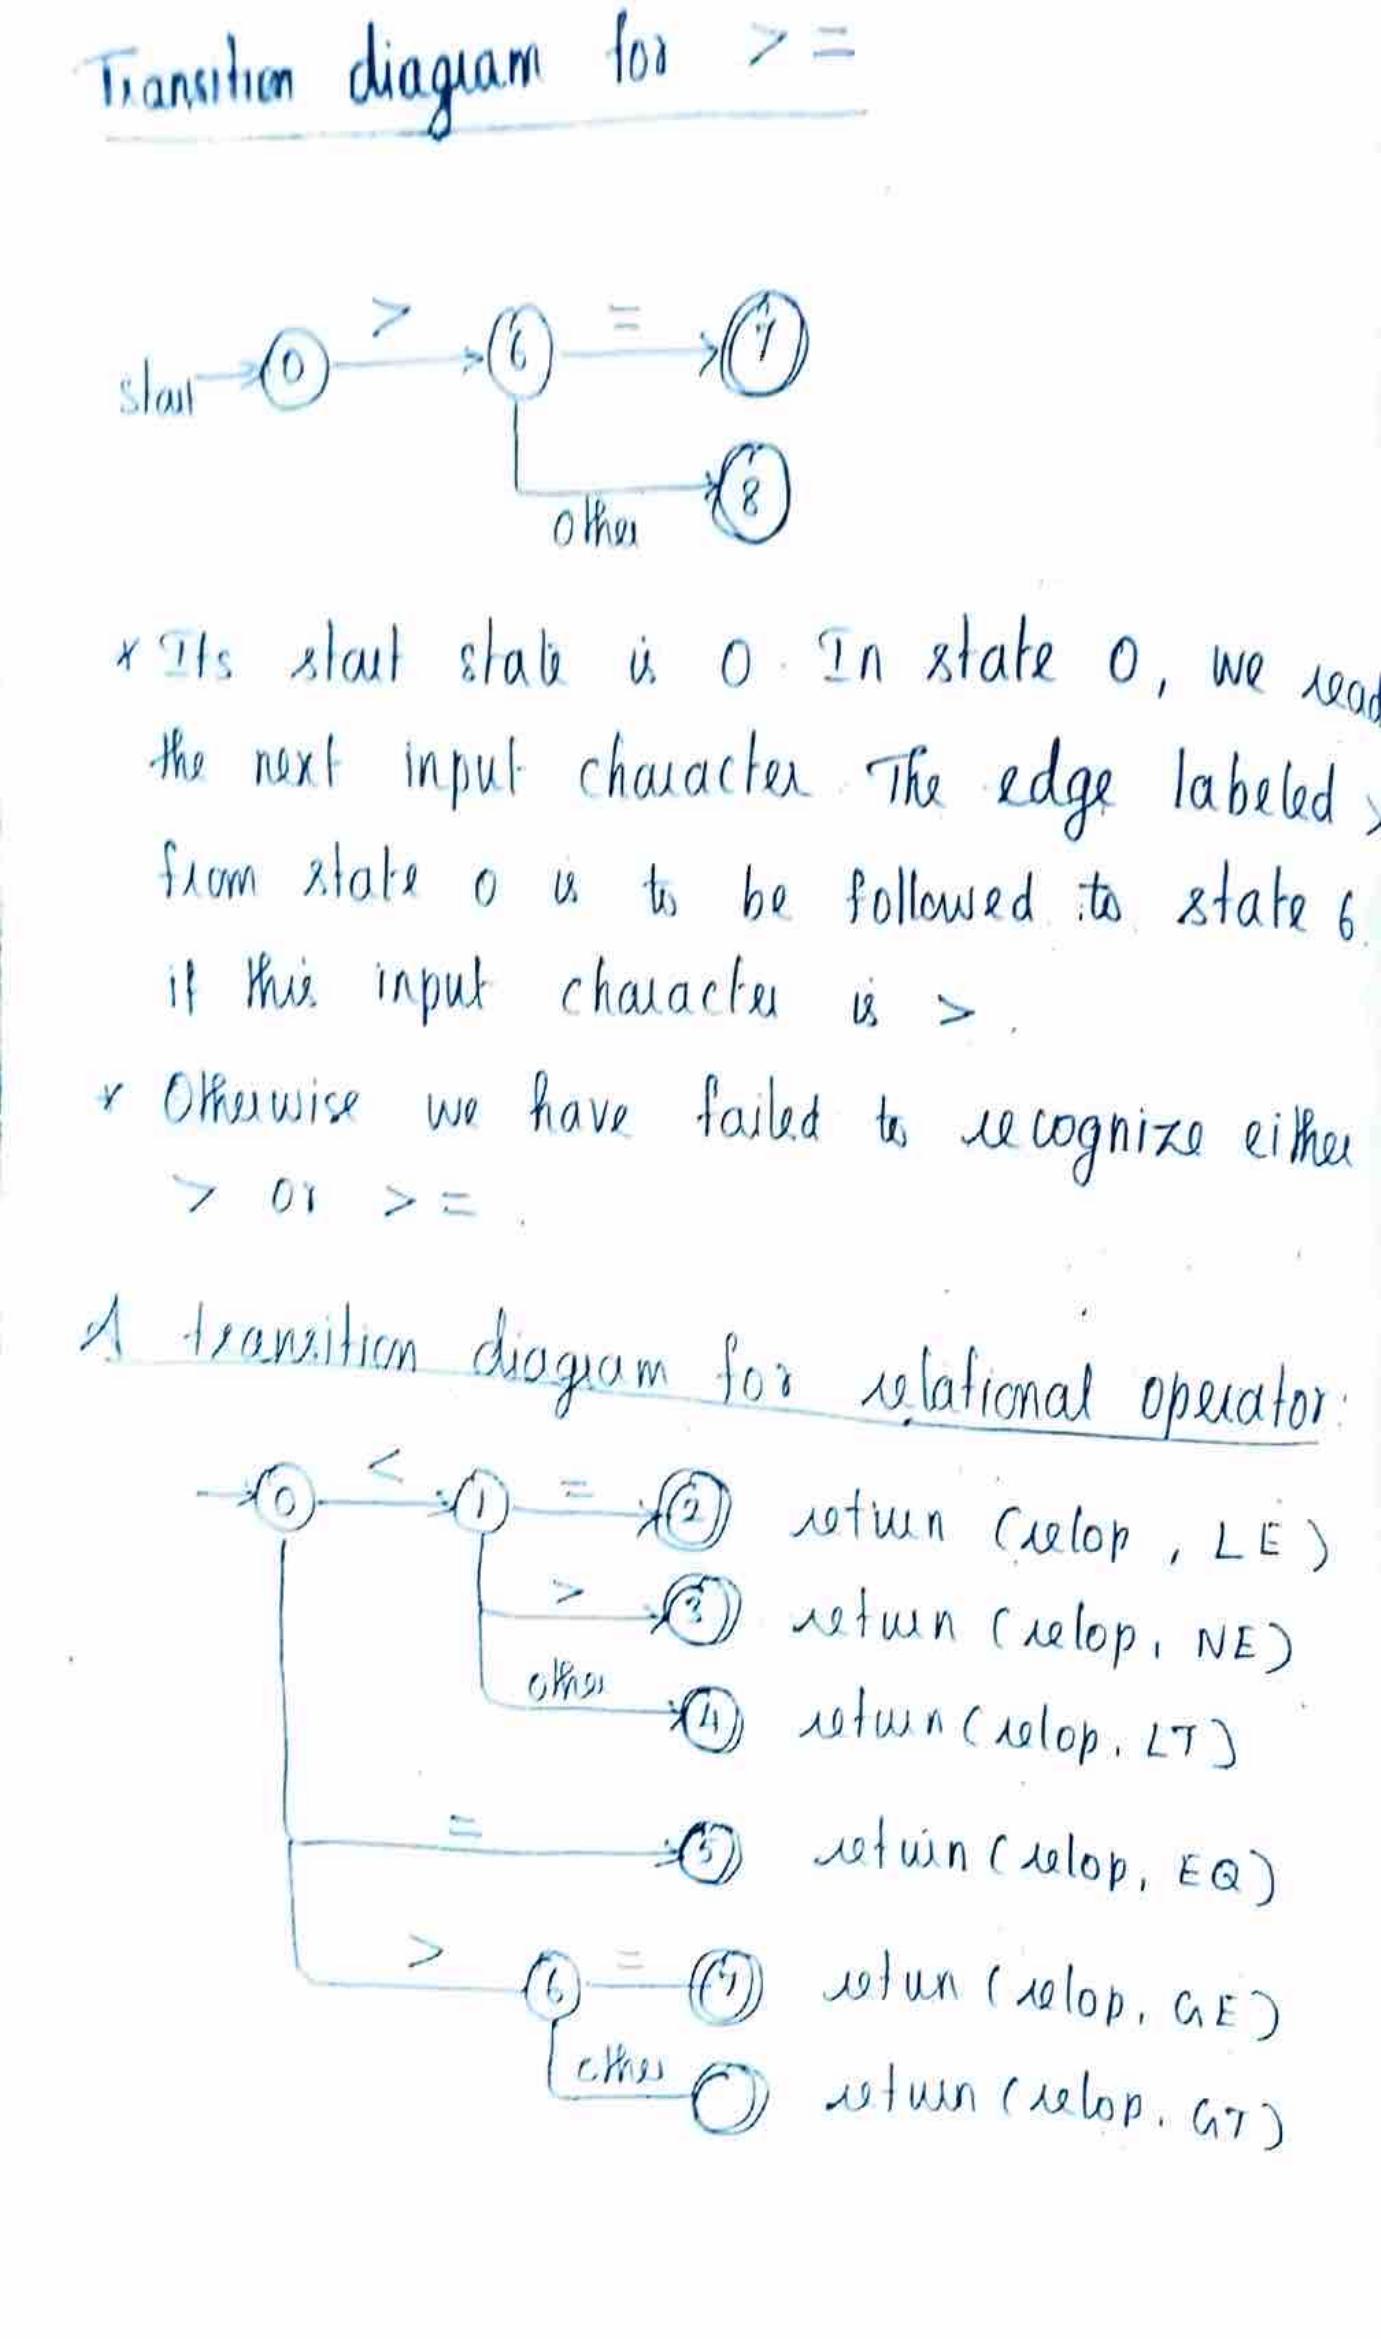 Transition diagram for >=
> =
start 0 6 7
8
other
* Its start state is 0. In state 0, we read
the next input character. The edge labeled >
from state 0 is to be followed to state 6.
if this input character is >.
* Otherwise we have failed to recognize either
> or >=.
A transition diagram for relational operator:
< =
0 1 2 return (relop, LE)
> 3 return (relop, NE)
other 4 return (relop, LT)
= 5 return (relop, EQ)
> 6 = 7 retun (relop, GE)
other return (relop, GT)